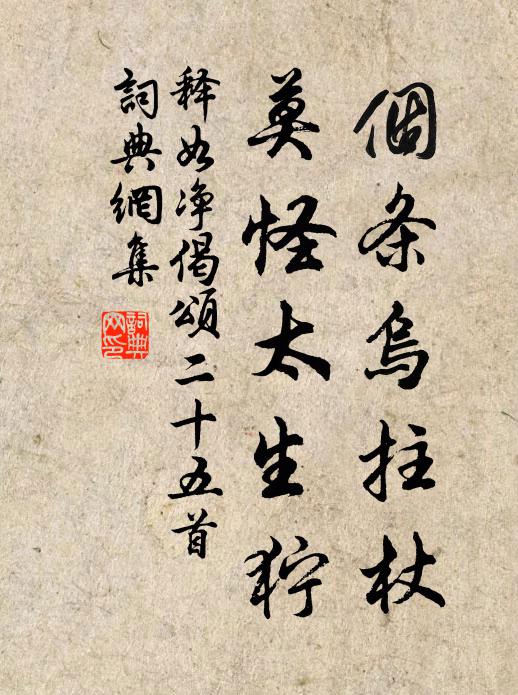 個条烏拄杖
莫怪太生狞
释如净偈頌二十五首
詞典網集
詞典
网印